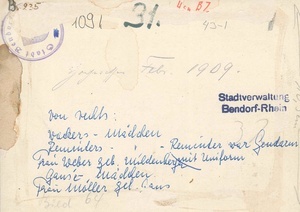 B. 935
109 l
31.
43-1
Febr. 1909.
Stadtverwaltung
Bendorf-Rhein
von rechts:
Wackers - Mädchen
Reminders - " - Reminder war Gendarm
Frau Weber geb. Mildenberg mit Uniform
Gans'e Mädchen
Frau Möller geb. Gans
Bild 64